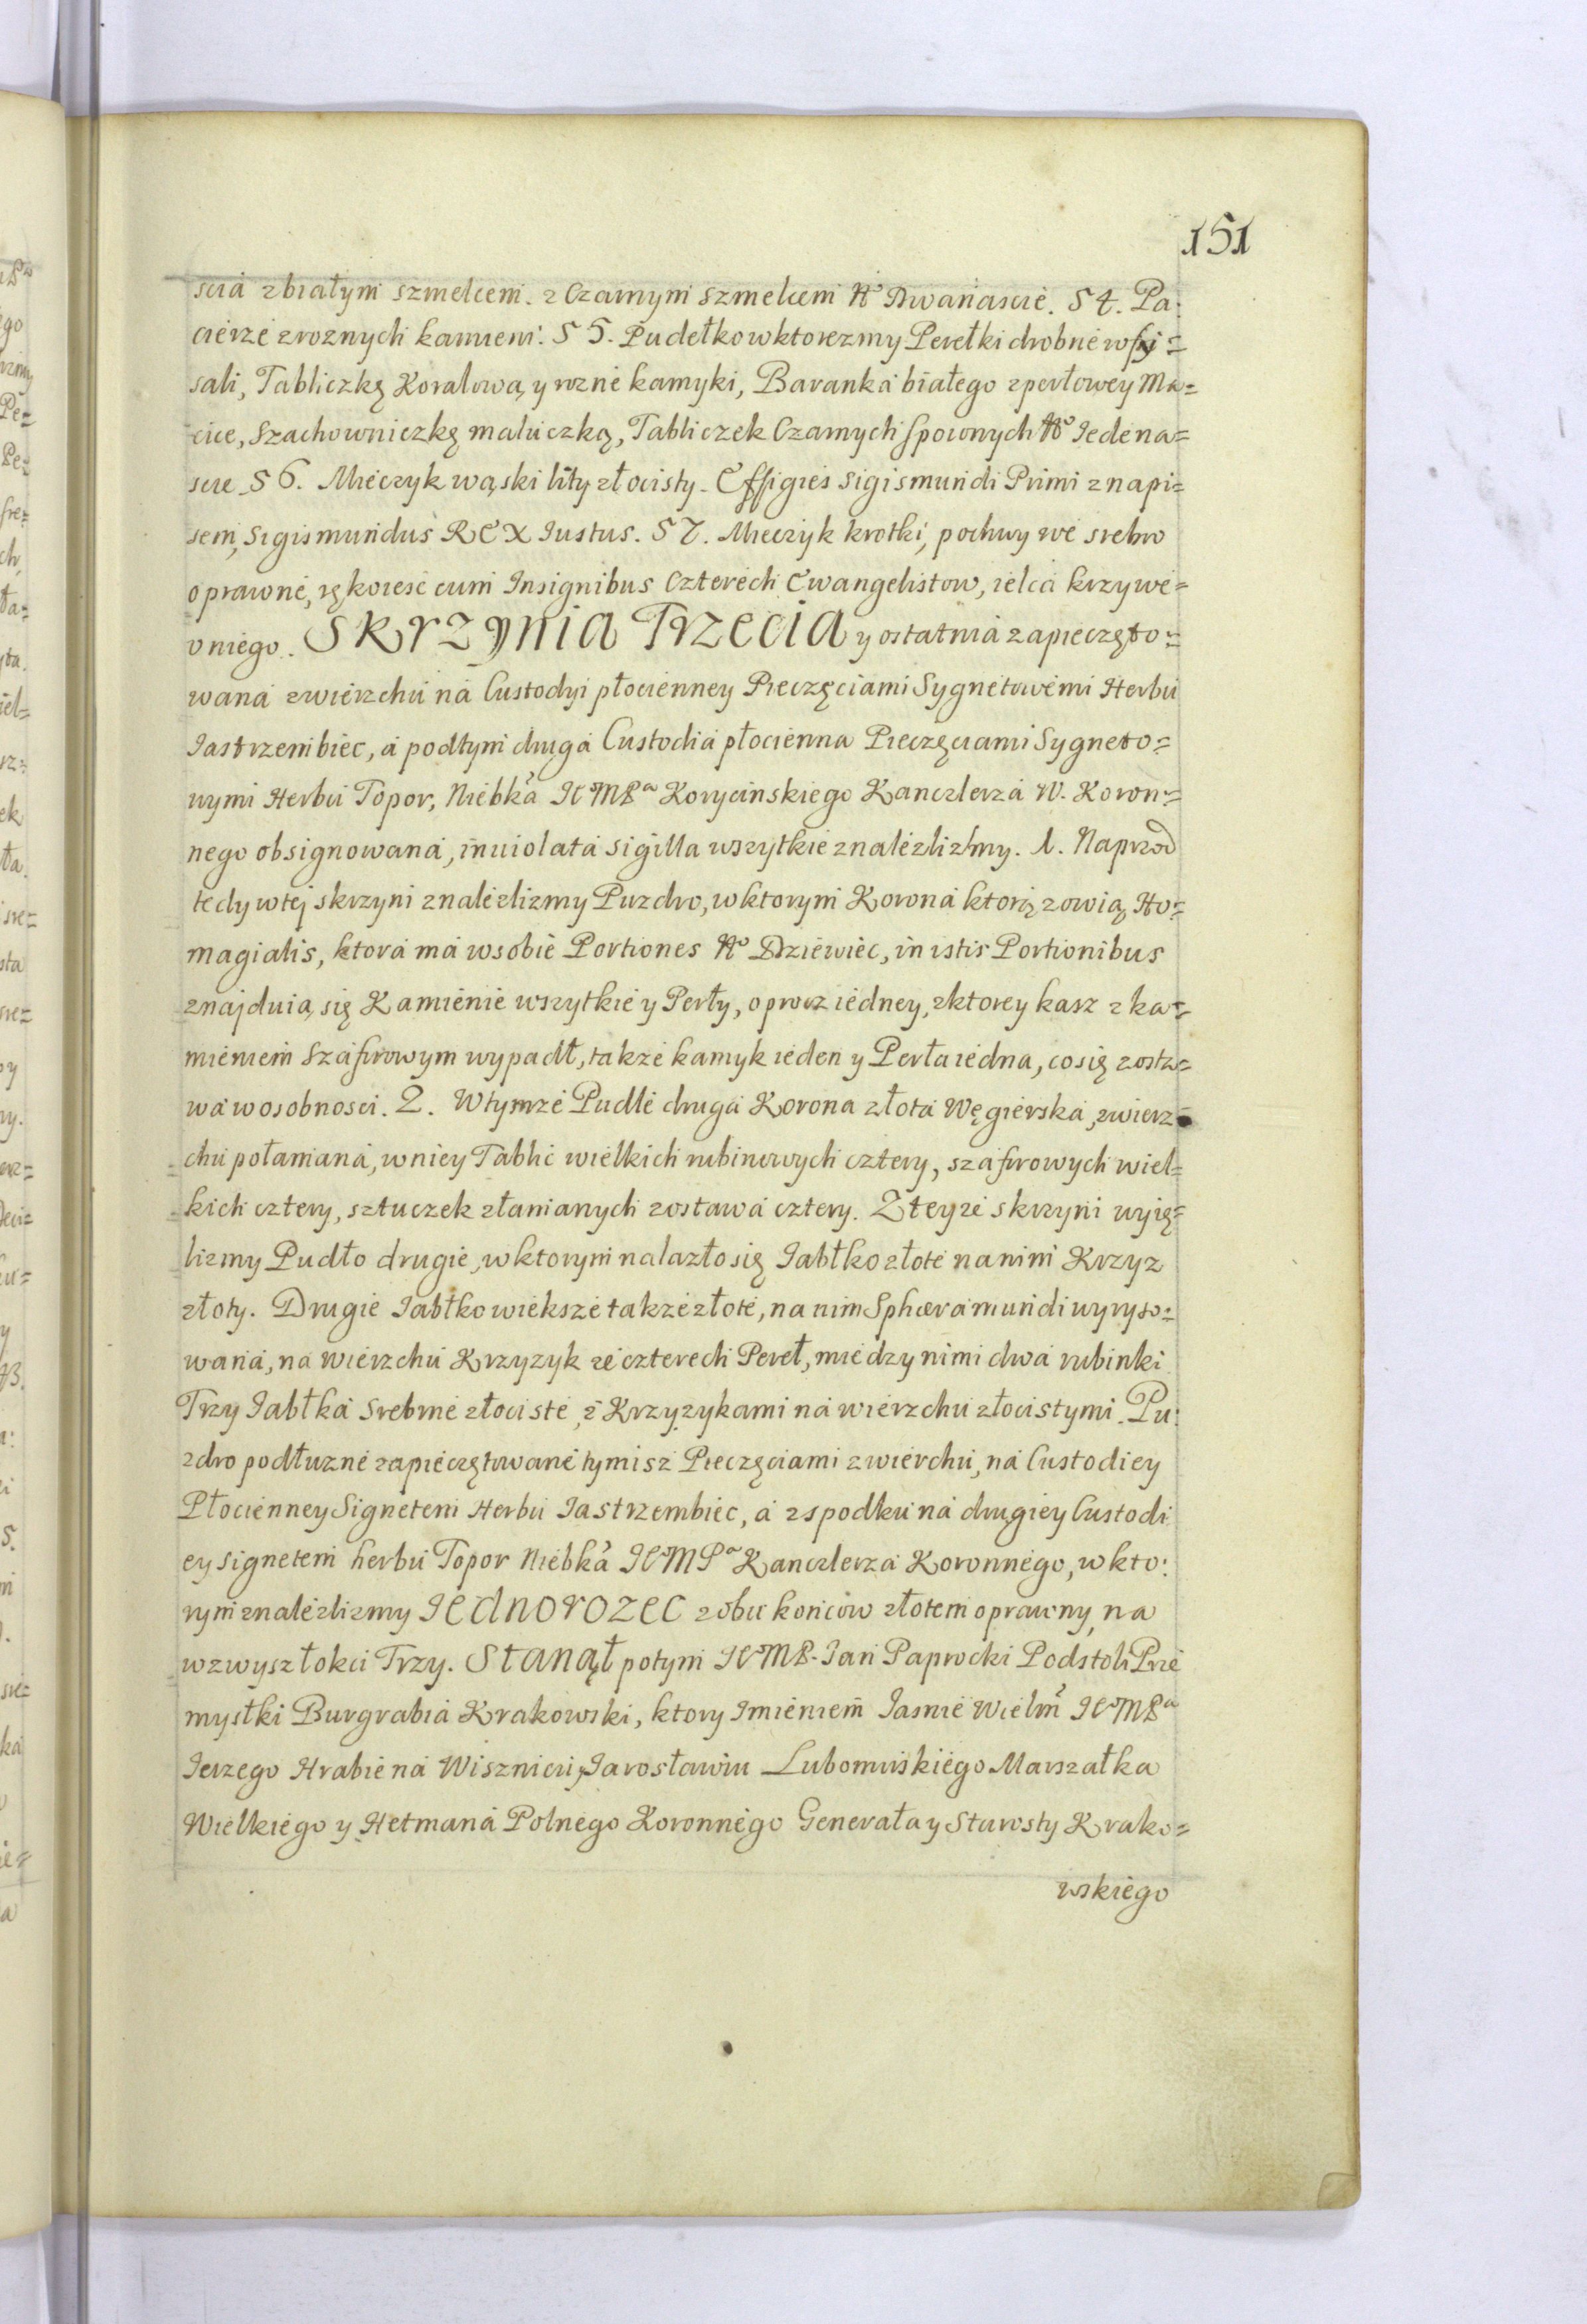 151
scia z białym szmelcem. z Czarnym szmelcem No Dwanascie. 54. Pa:
cierze z roznych kamieni. 55. Pudełko w ktorezmy Perełki drobne wsy=
sali, Tabliczkę Koralową, y rozne kamyki, Baranka białego z perłowey Ma=
cice, szachowniczkę maluczką, Tabliczek Czarnych spoionych No Iedena=
scie 56. Mieczyk wąski lity złocisty. Effigies Sigismundi Primi z napi=
sem, Sigismundus REX Iustus. 57. Mieczyk krotki, pochwy we srebro
oprawne, rękoiesc cum Insignibus Czterech Ewangelistow, ielca krzywe=
o niego. SKRZynia Trzecia y ostatnia zapieczęto=
wana z wierzchu na Custodyi płocienney Pieczęciami Sygnetowemi Herbu
Iastrzembiec, a pod tym druga Custodia płocienna Pieczęciami Sygneto=
wymi Herbu Topor, Niebka IeMPa Korycinskiego Kanczlerza W. Koron=
nego obsignowana, inuiolata sigilla wszytkie znalezlizmy. 1. Naprzod
tedy w tej skrzyni znalezlizmy Puzdro, w ktorym Korona ktorą zowią Ho=
magialis, ktora ma w sobie Portiones No Dziewiec, in istis Portionibus
znajduią się Kamienie wszytkie y Perły, oprocz iedney, z ktorey kasz z ka=
mieniem Szafirowym wypadł, takze kamyk ieden y Perła iedna, co się zosta=
wa w osobnosci. 2. W tymze Pudle druga Korona złota Węgierska, z wierz=
chu połamana, w niey Tablic wielkich rubinowych cztery, szafirowych wiel=
kich cztery, sztuczek złamanych zostawa cztery. Z teyze skrzyni wyię=
lizmy Pudło drugie, w ktorym nalazło się Iabłko złote na nim Krzyz
złoty. Drugie Iabłko wieksze takze złote, na nim Sphæra mundi wyryso=
wana, na wierzchu Krzyzyk ze czterech Pereł, miedzy nimi dwa rubinki
Trzy Iabłka srebrne złociste, z Krzyzykami na wierzchu złocistymi. Pu:
zdro podłuzne zapieczętowane tymisz Pieczęciami z wierchu, na Custodiey
Płocienney Signetem Herbu Iastrzembiec, a z spodku na drugiey Custodi
ey signetem herbu Topor Niebka IeMPa Kanczlerza Koronnego, w kto:
rym znalezlizmy IEdnorozec z obu koncow złotem oprawny, na
wzwysz łokci Trzy. Stanął potym IeMP. Ian Paprocki Podstoli Prze
mysłki Burgrabia Krakowski, ktory Imieniem Iasnie Wielm IeMPa
Ierzego Hrabie na Wiszniczu, y Iarosławiu Lubomirskiego Marszałka
Wielkiego y Hetmana Polnego Koronnego Generała y Starosty Krako=
wskiego